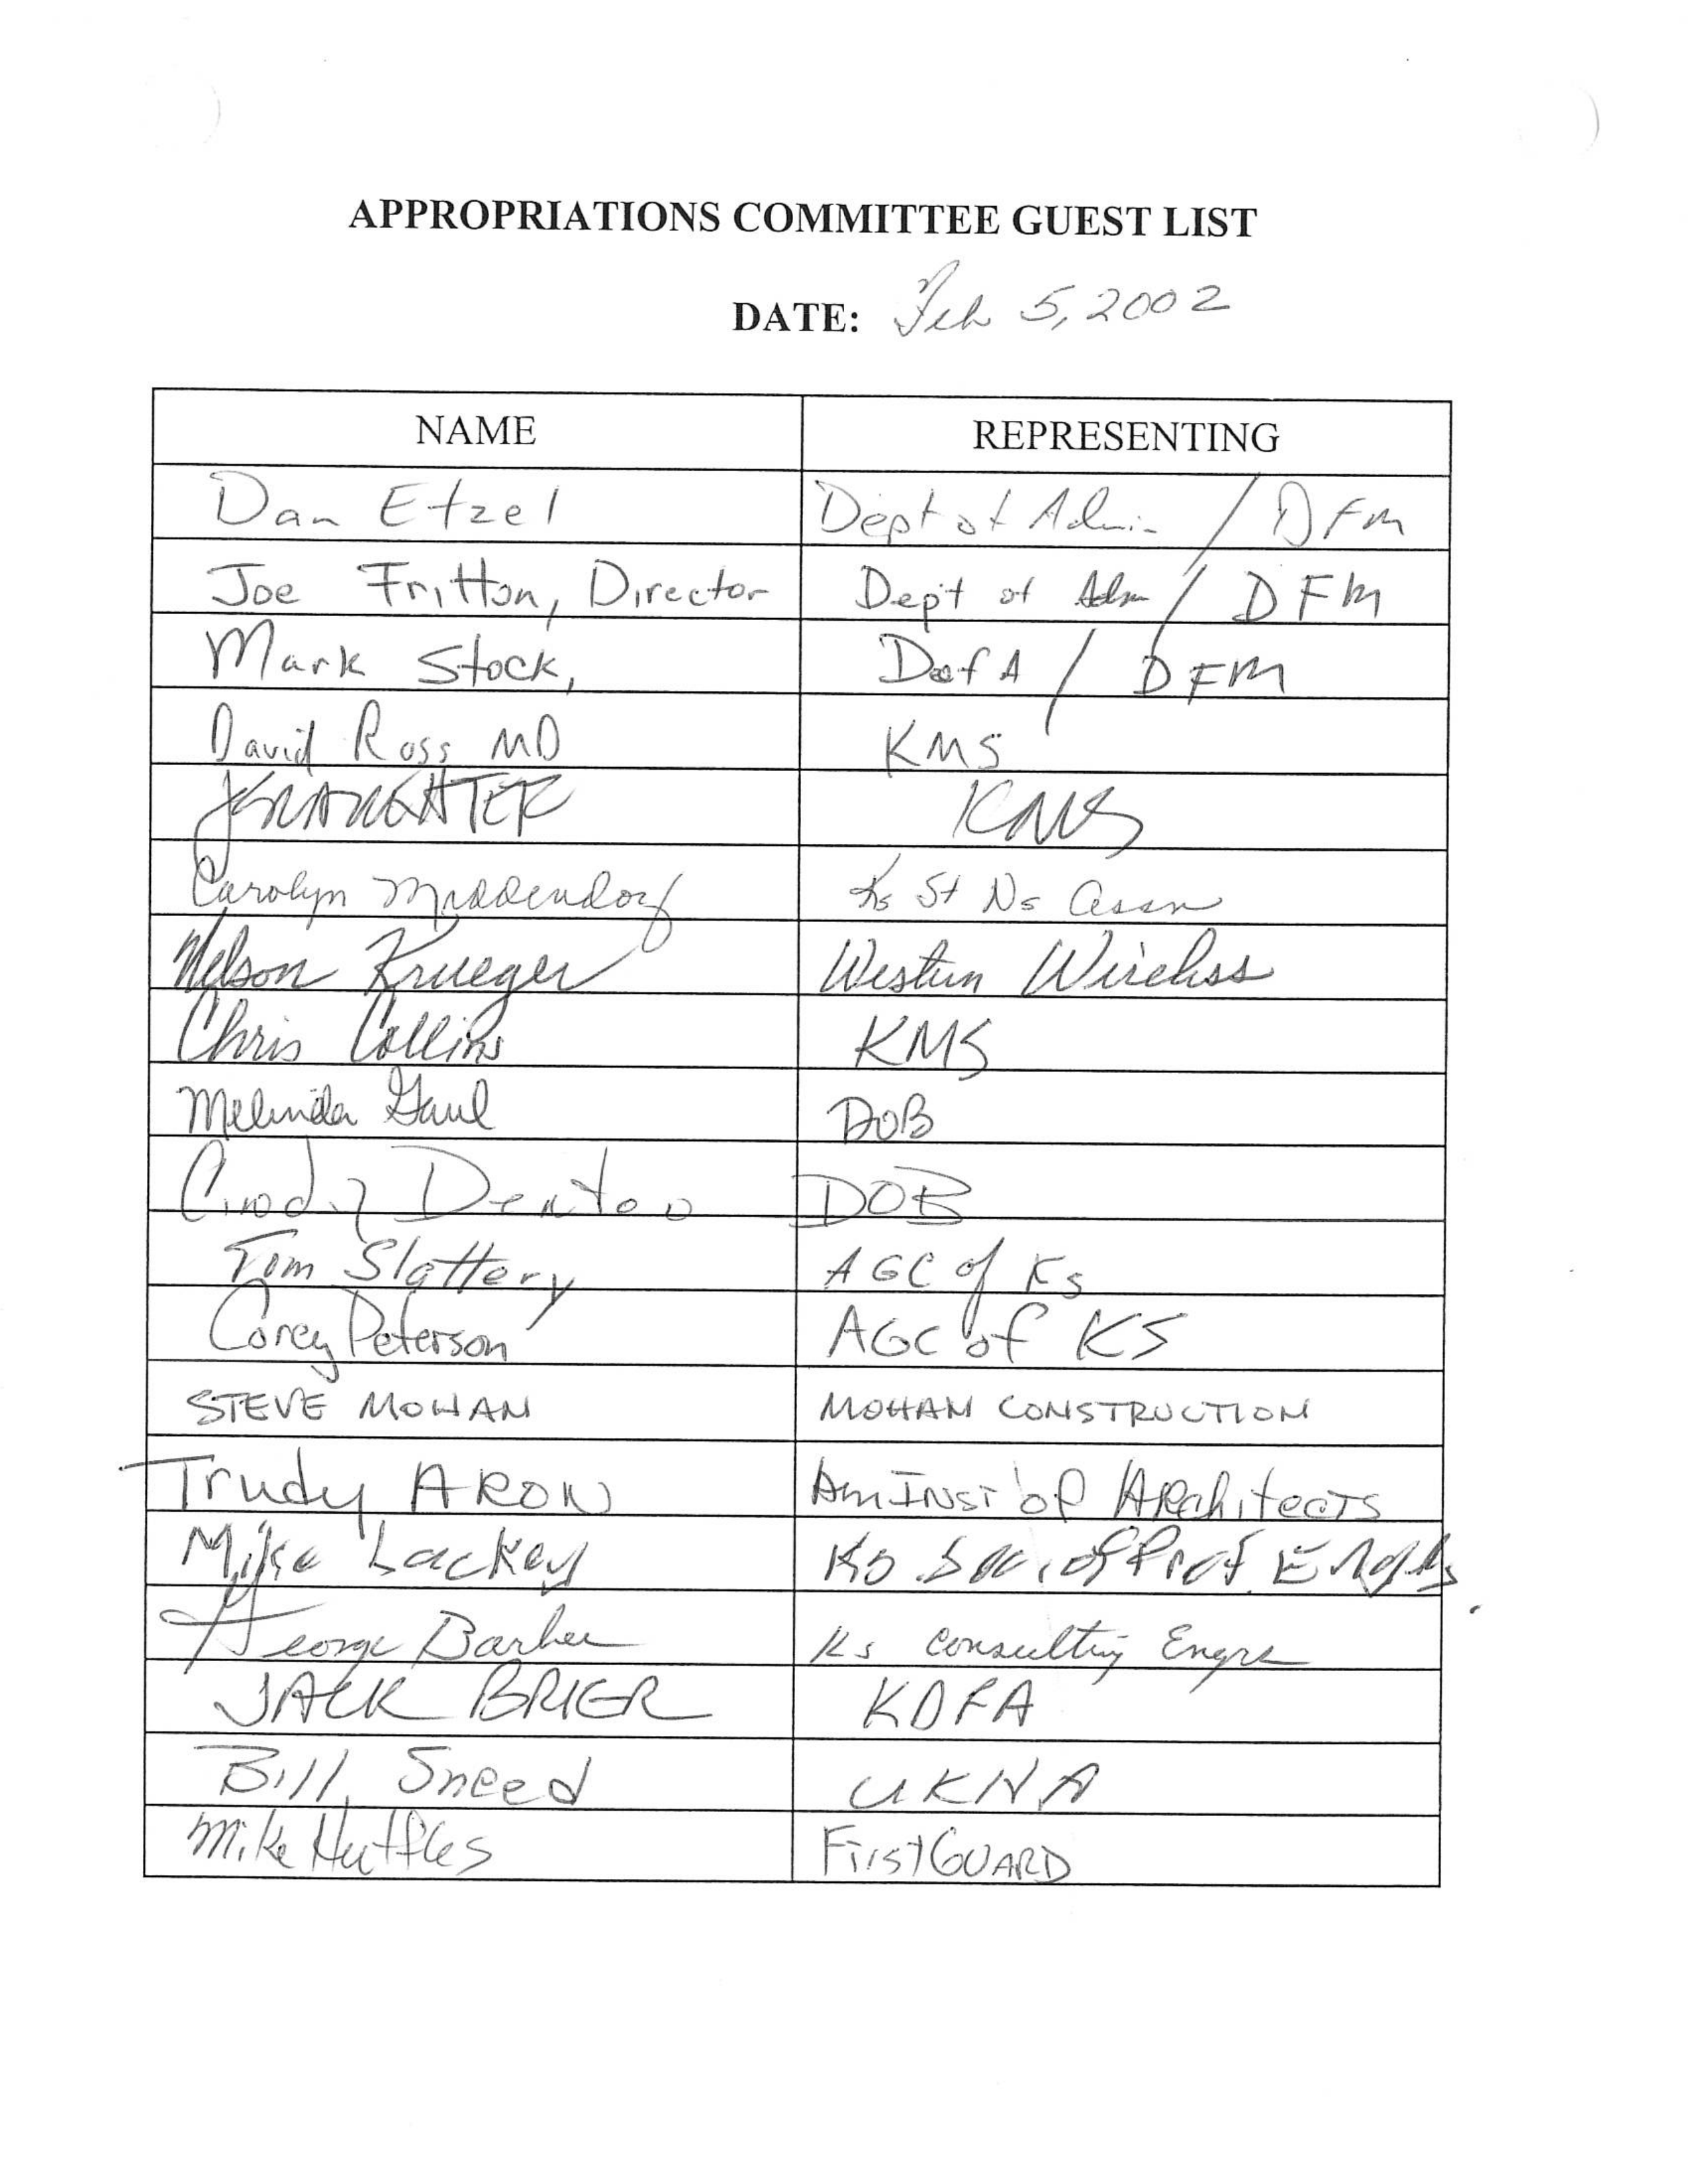 APPROPRIATIONS COMMITTEE GUEST LIST
DATE: Feb 5, 2002
NAME REPRESENTING
Dan Etzel Dept of Admin / DFM
Joe Fritton, Director Dept of Adm / DFM
Mark Stock, DofA / DFM
David Ross MD KMS
KMS
Carolyn Middendorf Ks St Ns Assn
Nelson Krueger Western Wireless
Chris Collins KMS
Melinda Gaul DOB
Cindy Denton DOB
Tom Slattery AGC of Ks
Corey Peterson AGC of KS
STEVE MOHAN MOHAN CONSTRUCTION
Trudy ARON Am INST of ARchitects
Mike Lackey Ks Soc. of Prof. Engrs.
George Barbee Ks Consulting Engrs
JACK BRIER KDFA
Bill Sneed UKHA
Mike Huttles FirstGUARD